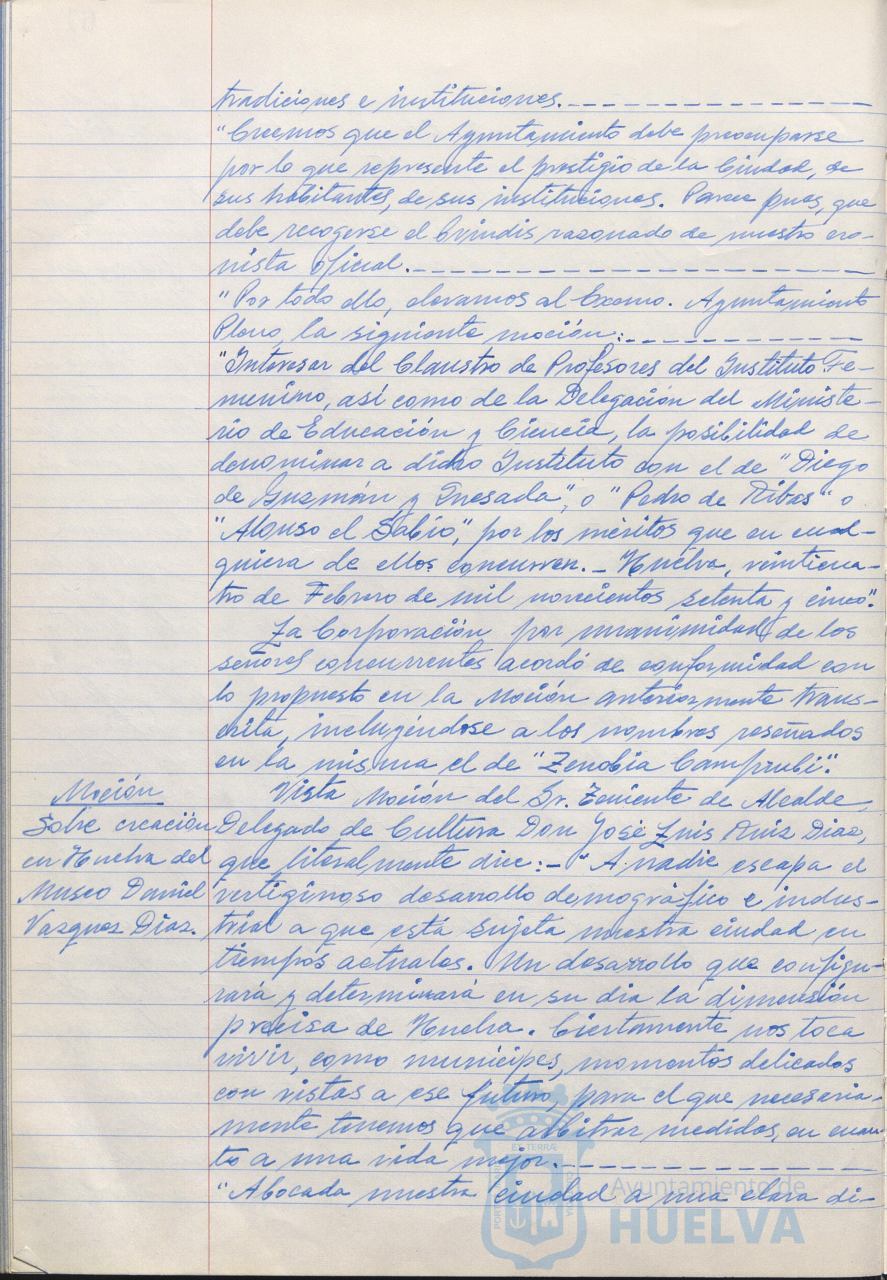 tradiciones e instituciones.
"Creemos que el Ayuntamiento debe preocuparse
por lo que represente el prestigio de la Ciudad, de
sus habitantes, de sus instituciones. Parece pues, que
debe recogerse el brindis razonado de nuestro cro-
nista oficial.
"Por todo ello, elevamos al Excmo. Ayuntamiento
Pleno, la siguiente moción:
"Interesar del Claustro de Profesores del Instituto Fe-
menino, así como de la Delegación del Ministe-
rio de Educación y Ciencia, la posibilidad de
denominar a dicho Instituto con el de "Diego
de Guzmán y Quesada", o "Pedro de Ribas" o
"Alonso el Sabio", por los méritos que en cual-
quiera de ellos concurren.- Huelva, veinticua-
tro de Febrero de mil novecientos setenta y cinco".
La Corporación, por unanimidad de los
señores concurrentes acordó de conformidad con
lo propuesto en la Moción anteriormente trans-
crita, incluyéndose a los nombres reseñados
en la misma el de "Zenobia Camprubí".
Moción
Sobre creación
en Huelva del
Museo Daniel
Vazquez Díaz.
Vista Moción del Sr. Teniente de Alcalde,
Delegado de Cultura Don José Luis Ruiz Diaz,
que literalmente dice:- "A nadie escapa el
vertiginoso desarrollo demográfico e indus-
trial a que está sujeta nuestra ciudad en
tiempos actuales. Un desarrollo que configu-
rará y determinará en su dia la dimensión
precisa de Huelva. Ciertamente nos toca
vivir, como munícipes, momentos delicados
con vistas a ese futuro, para el que necesaria-
mente tenemos que arbitrar medidas, en cuan-
to a una vida mejor.
"Abocada nuestra ciudad a una clara di-
Ayuntamiento de
HUELVA